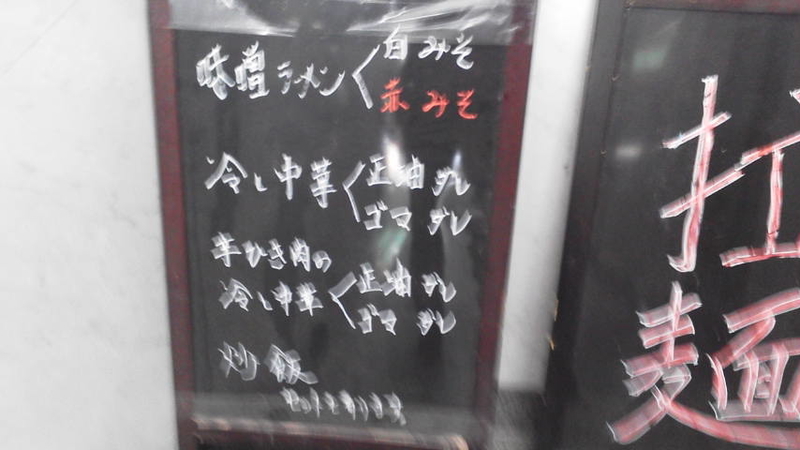 味噌ラーメン
白みそ
赤みそ
冷し中華
正油ダレ
ゴマダレ
羊ひき肉の
冷し中華
正油ダレ
ゴマダレ
炒飯
セットもあります
拉
麺